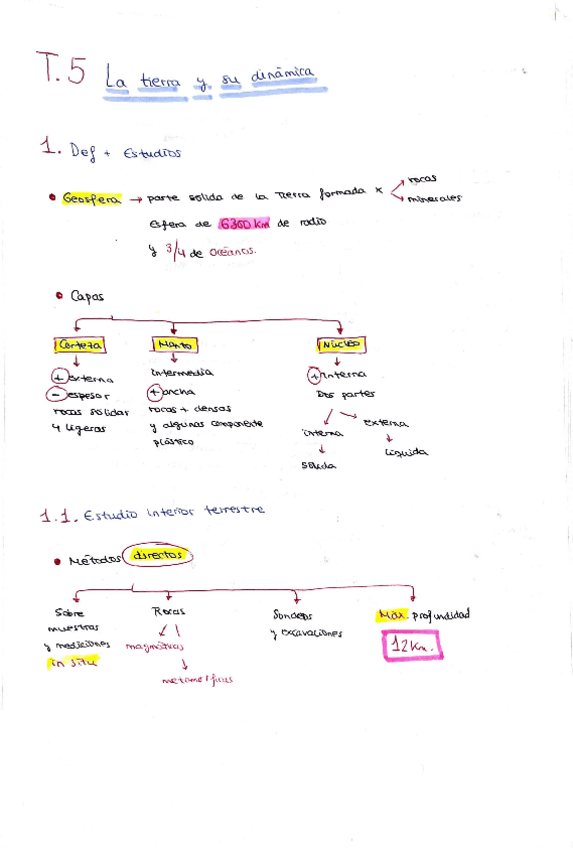 T.5 La tierra y su dinámica
1. Def + Estudios
• Geosfera → parte solida de la Tierra formada x → rocas
→ minerales
esfera de 6300 km de radio
y 3/4 de océanos.
• Capas
Corteza Manto Núcleo
+ externa intermedia + interna
- espesor + ancha Dos partes
rocas solidas rocas + densas
y ligeras y algunas componente
plástico
interna externa
sólida líquida
1.1. Estudio interior terrestre
• Métodos directos
Sobre Rocas Sondeos Máx. profundidad
muestras y excavaciones 12 Km.
y mediciones magmáticas
in situ
metamórficas